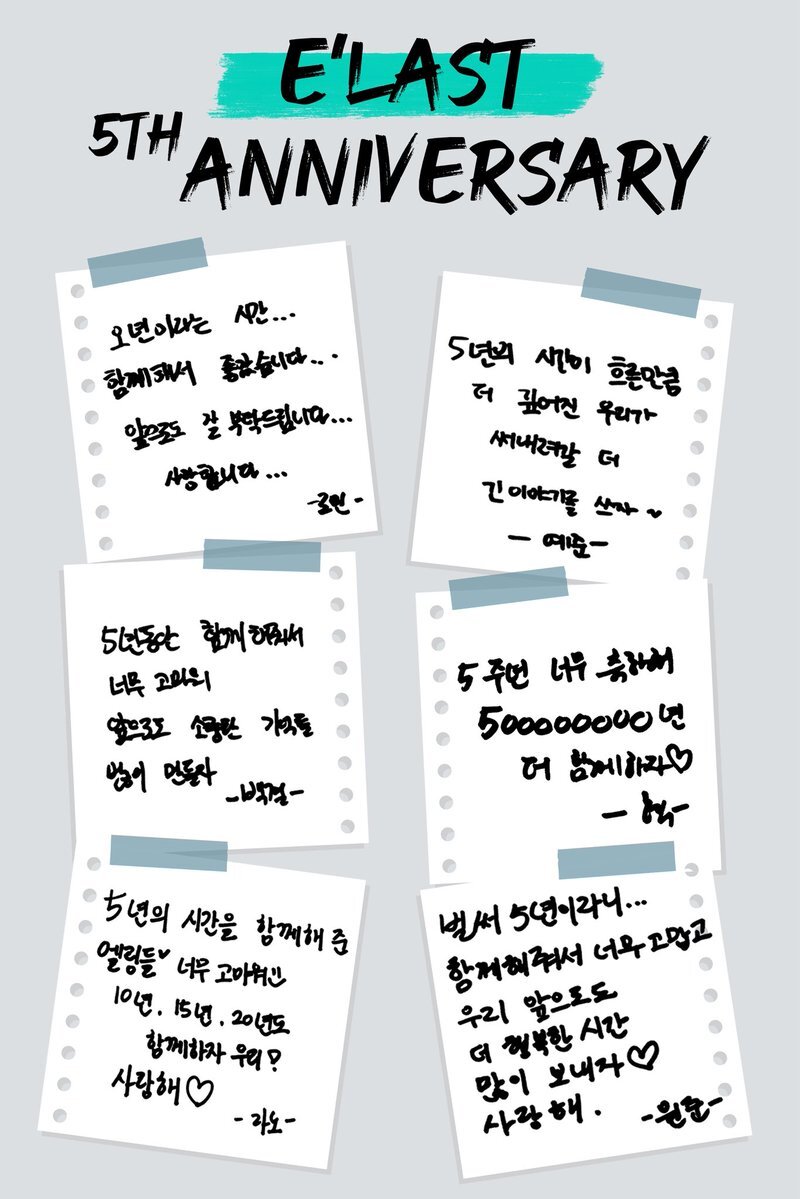 E'LAST
5TH ANNIVERSARY
오년이라는 시간...
함께해서 좋았습니다...
앞으로도 잘 부탁드립니다...
사랑합니다...
-로민-
5년의 시간이 흐른만큼
더 깊어진 우리가
써내려갈 더
긴 이야기를 쓰자
- 예준 -
5년동안 함께 해줘서
너무 고마워
앞으로도 소중한 기억들
많이 만들자
-백결-
5주년 너무 축하해
500000000년
더 함께하자♡
- 혁 -
5년의 시간을 함께해 준
엘링들♥ 너무 고마워!!
10년, 15년, 20년도
함께하자 우리?
사랑해♡
- 라노 -
벌써 5년이라니...
함께해줘서 너무 고맙고
우리 앞으로도
더 행복한 시간
많이 보내자♡
사랑해.
-원준-